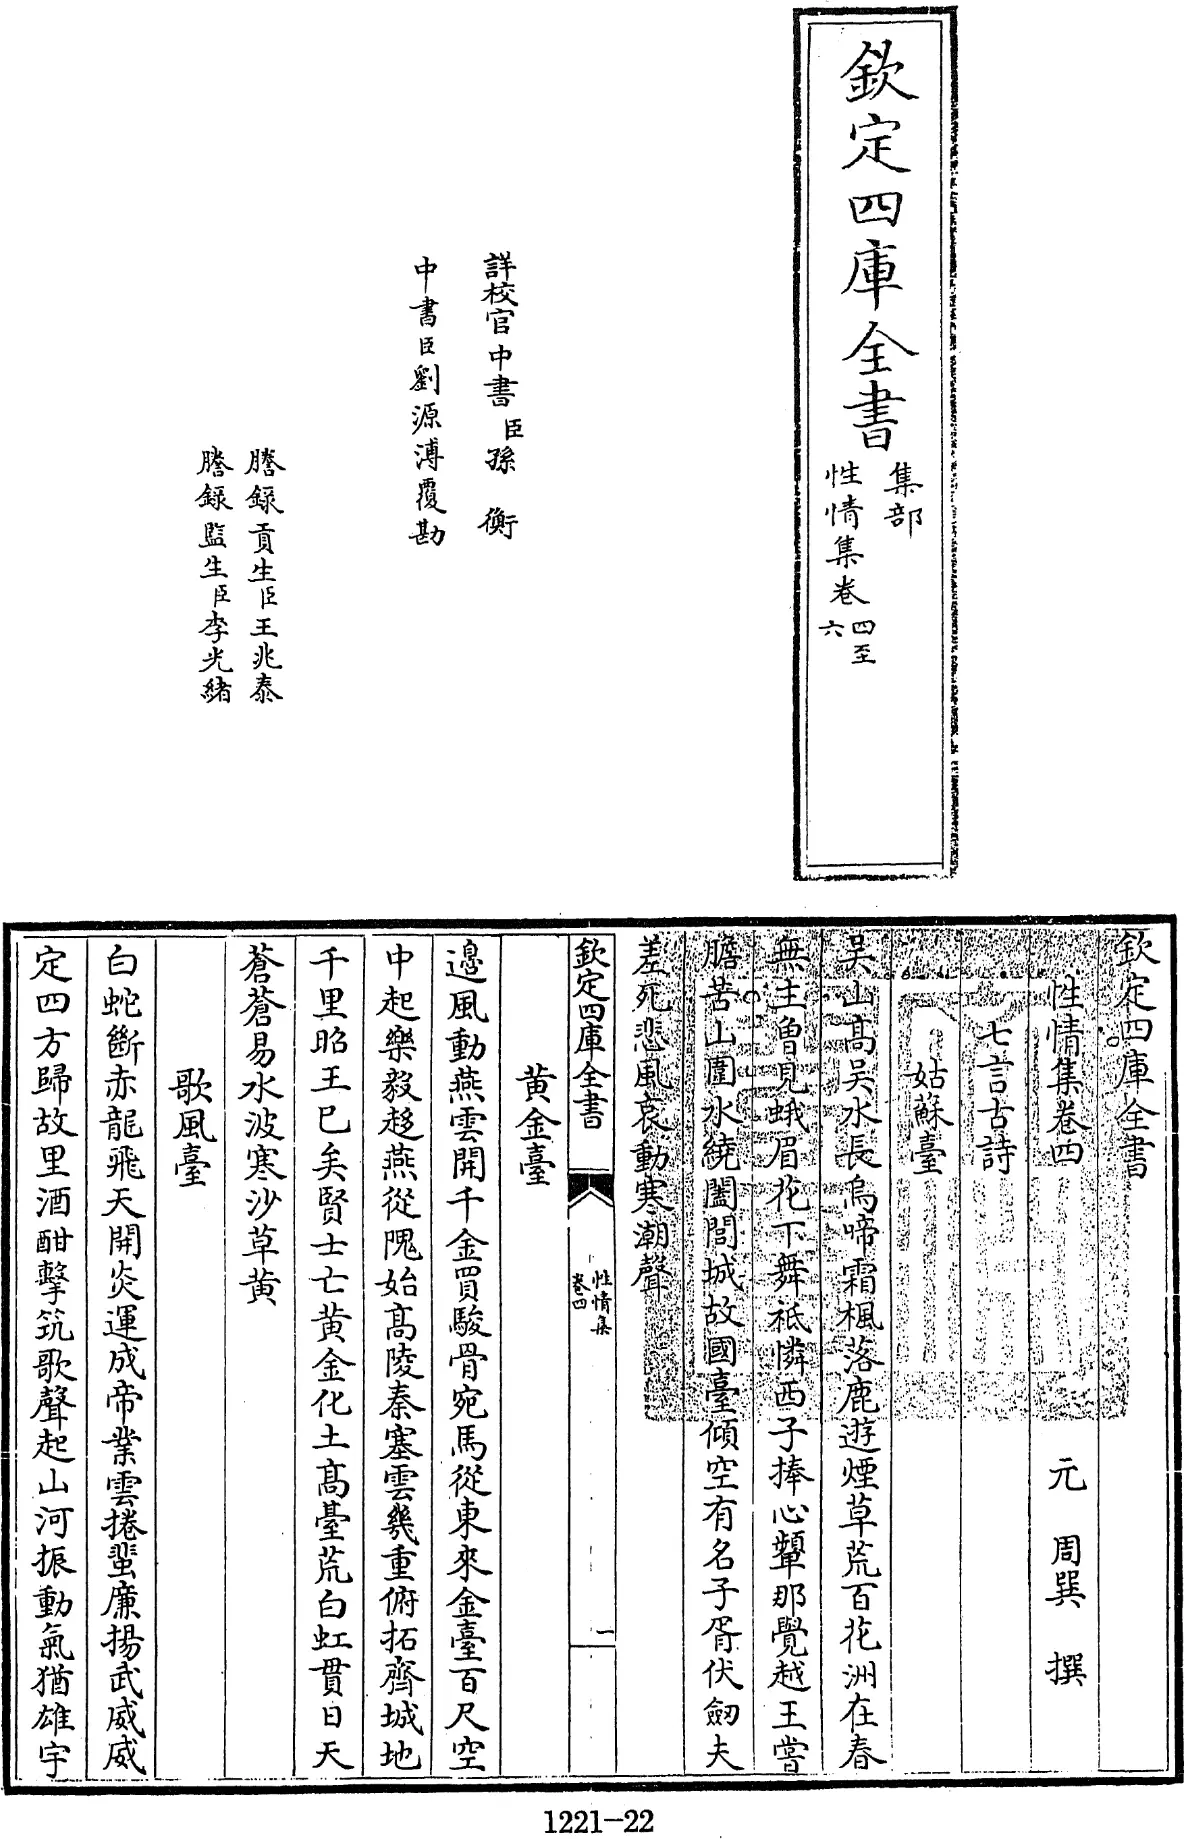 欽定四庫全書
集部
性情集卷四至六
詳校官中書臣孫衡
中書臣劉源溥覆勘
謄録貢生臣王兆泰
謄録監生臣李光緒
欽定四庫全書
性情集卷四
元 周巽 撰
七言古詩
姑蘇臺
吳山髙吳水長烏啼霜楓落鹿遊煙草荒百花洲在春
無主曾見蛾眉花下舞祗憐西子捧心顰那覺越王嘗
膽苦山圍水繞闔閭城故國臺傾空有名子胥伏劒夫
差死悲風哀動寒潮聲
欽定四庫全書
性情集
卷四
一
黄金臺
邉風動燕雲開千金買駿骨宛馬從東來金臺百尺空
中起樂毅趍燕從隗始髙陵秦塞雲幾重俯拓齊城地
千里昭王已矣賢士亡黄金化土髙臺荒白虹貫日天
蒼蒼易水波寒沙草黄
歌風臺
白蛇斷赤龍飛天開炎運成帝業雲捲蜚亷揚武威威
定四方歸故里酒酣擊筑歌聲起山河振動氣猶雄宇
1221-22